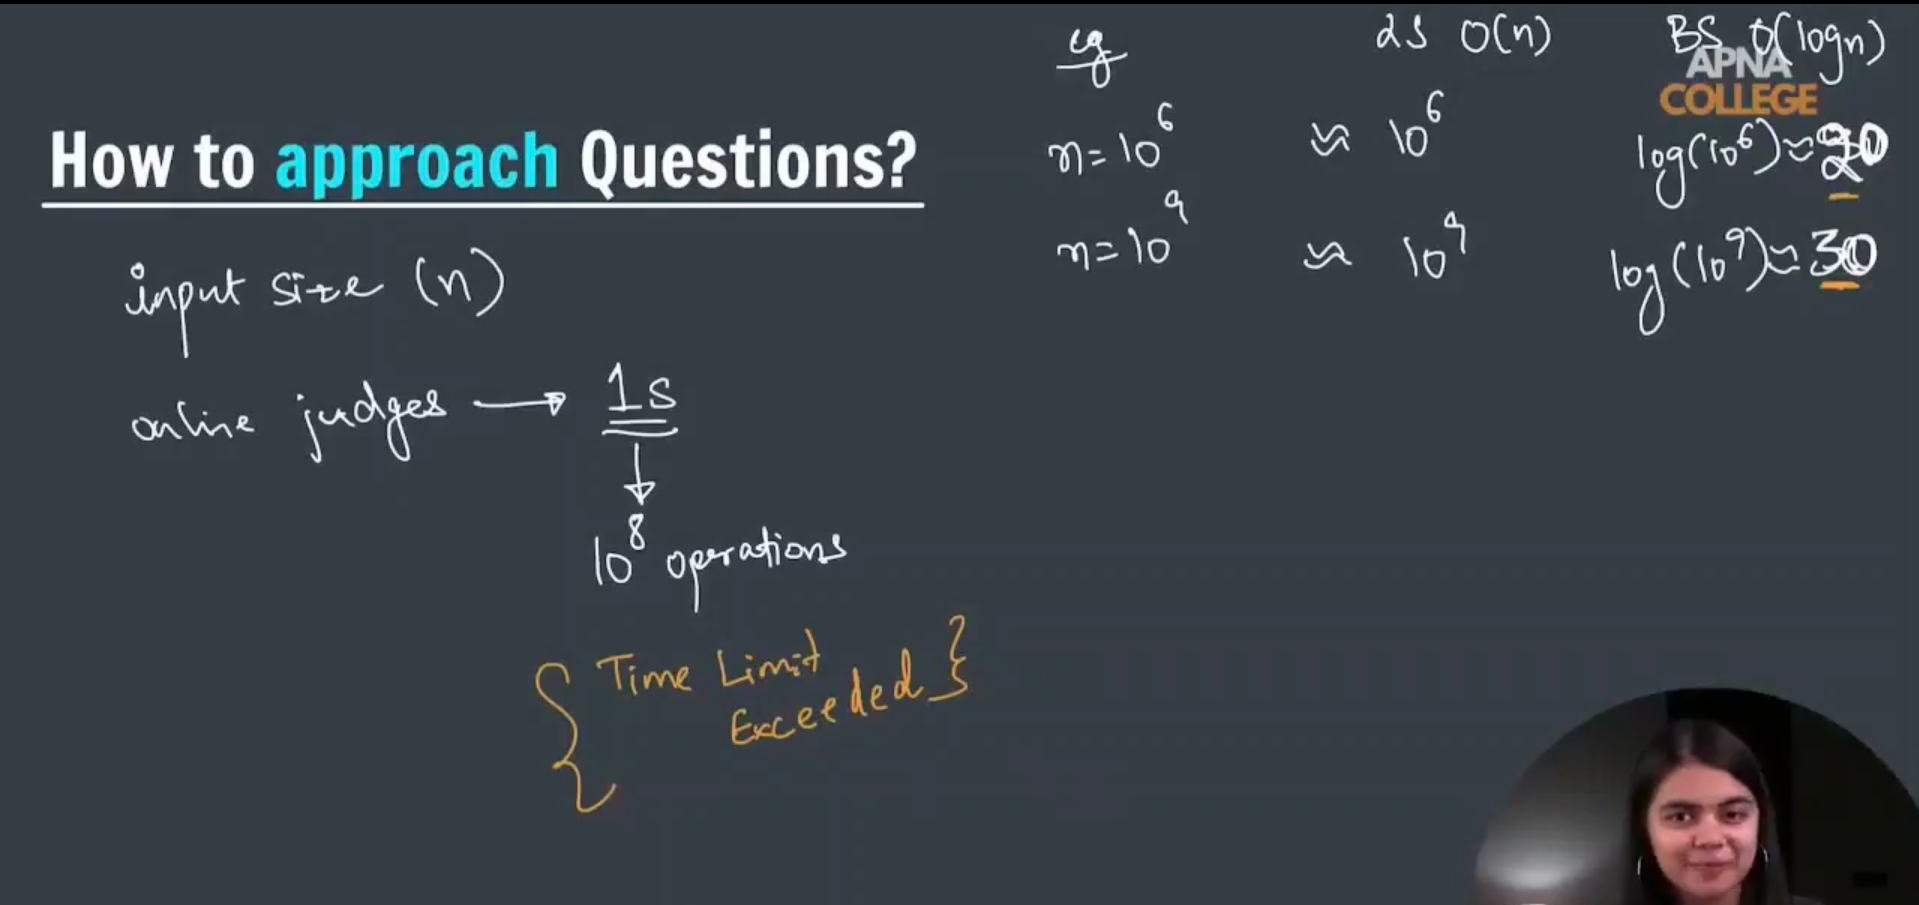 How to approach Questions?
input size (n)
online judges → 1s
↓
10⁸ operations
{ Time Limit
Exceeded }
eg LS O(n) BS O(logn)
APNA
COLLEGE
n=10⁶ ≈ 10⁶ log(10⁶)≈20
n=10⁹ ≈ 10⁹ log(10⁹)≈30